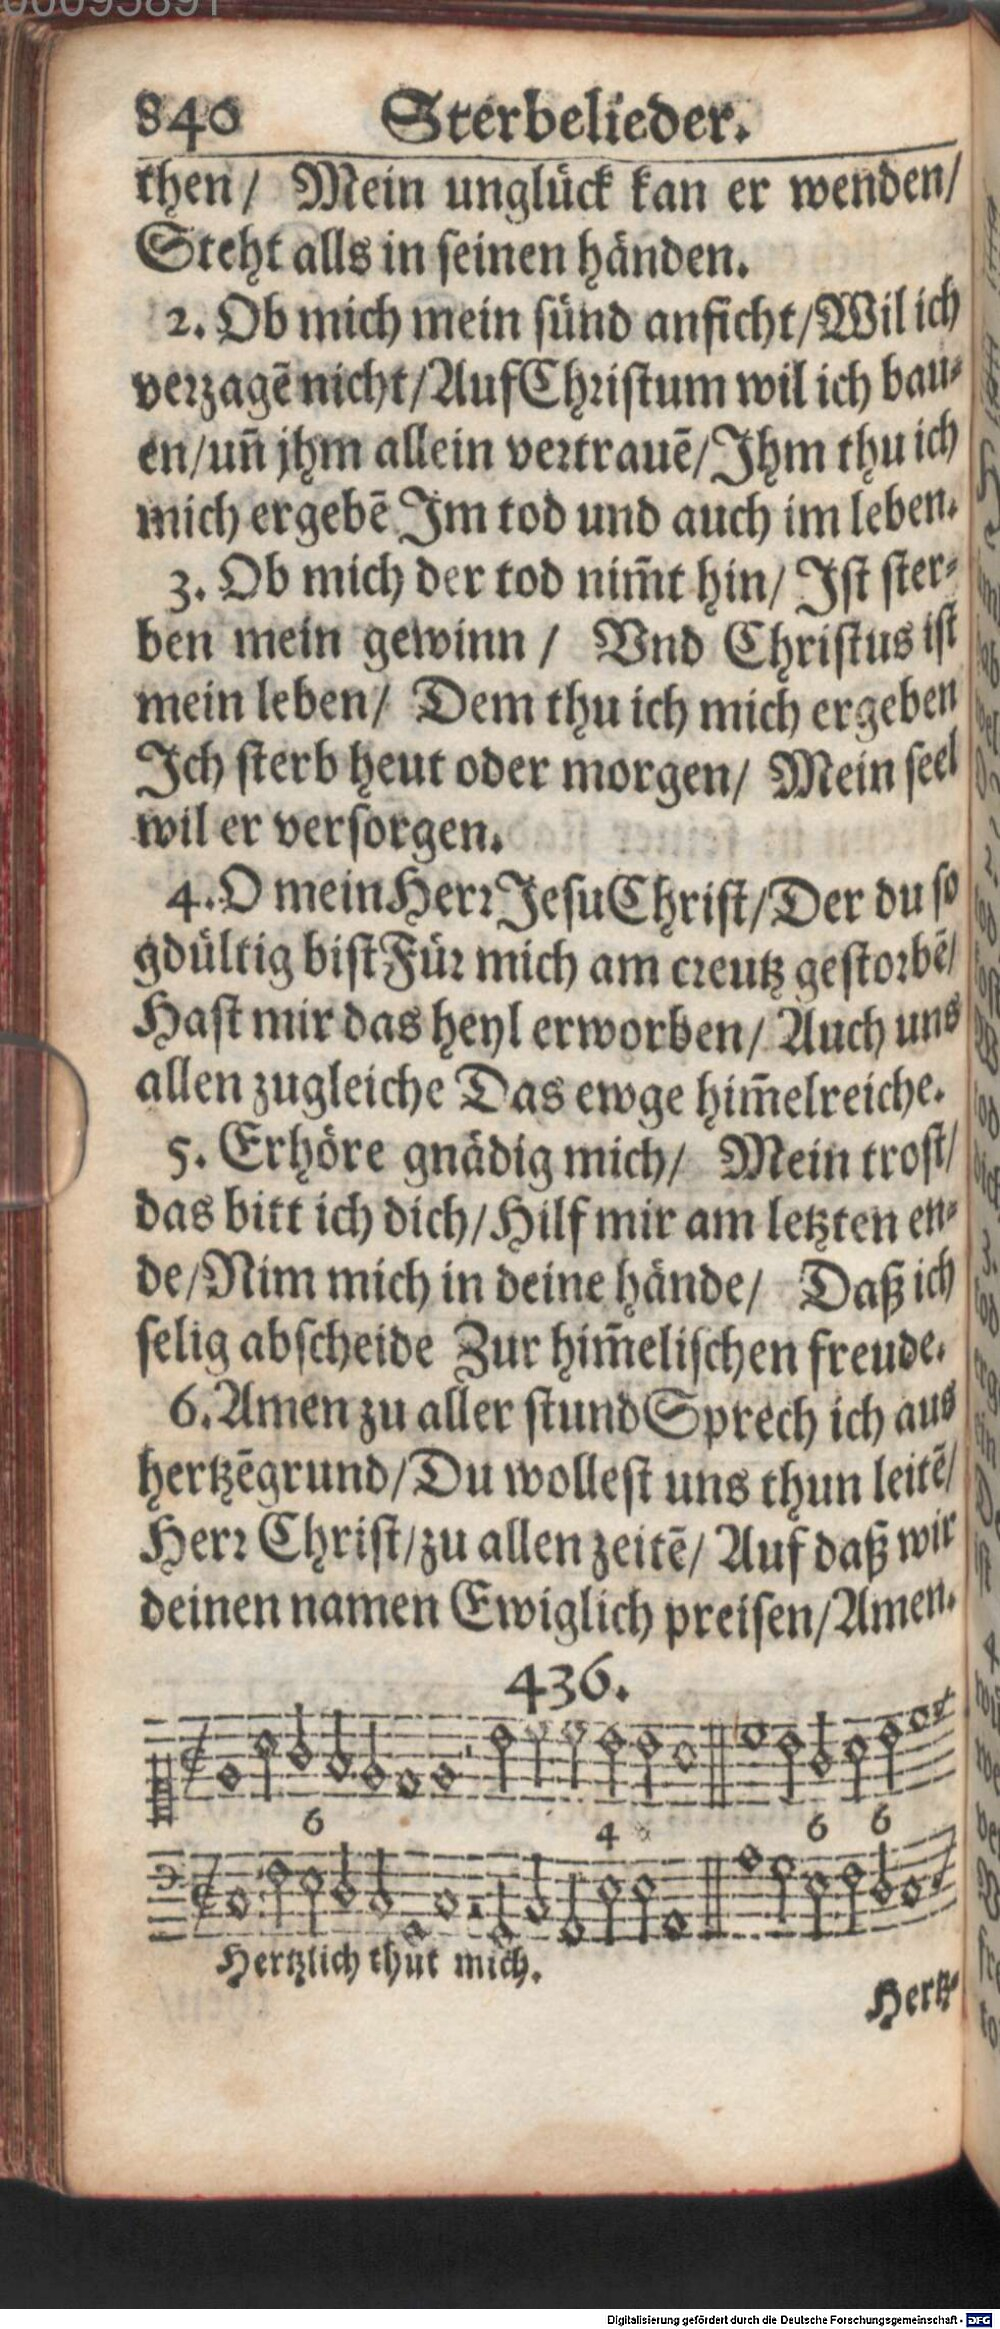 840 Sterbelieder.
then/ Mein unglück kan er wenden/
Steht alls in seinen händen.
2. Ob mich mein sünd anficht/Wil ich
verzagē nicht/Auf Christum wil ich bau-
en/uñ jhm allein vertrauē/Ihm thu ich
mich ergebē Im tod und auch im leben.
3. Ob mich der tod nim̄t hin/ Ist ster-
ben mein gewinn / Vnd Christus ist
mein leben/ Dem thu ich mich ergeben
Ich sterb heut oder morgen/ Mein seel
wil er versorgen.
4. O mein Herr Jesu Christ/Der du so
gdültig bist Für mich am creutz gestorbē/
Hast mir das heyl erworben/ Auch uns
allen zugleiche Das ewge him̄elreiche.
5. Erhöre gnädig mich/ Mein trost/
das bitt ich dich/Hilf mir am letzten en-
de/Nim mich in deine hände/ Daß ich
selig abscheide Zur him̄elischen freude.
6. Amen zu aller stund Sprech ich aus
hertzēgrund/Du wollest uns thun leitē/
Herr Christ/zu allen zeitē/ Auf daß wir
deinen namen Ewiglich preisen/Amen.
436.
6 4 6 6
Hertzlich thut mich.
Hertz-
Digitalisierung gefördert durch die Deutsche Forschungsgemeinschaft - DFG